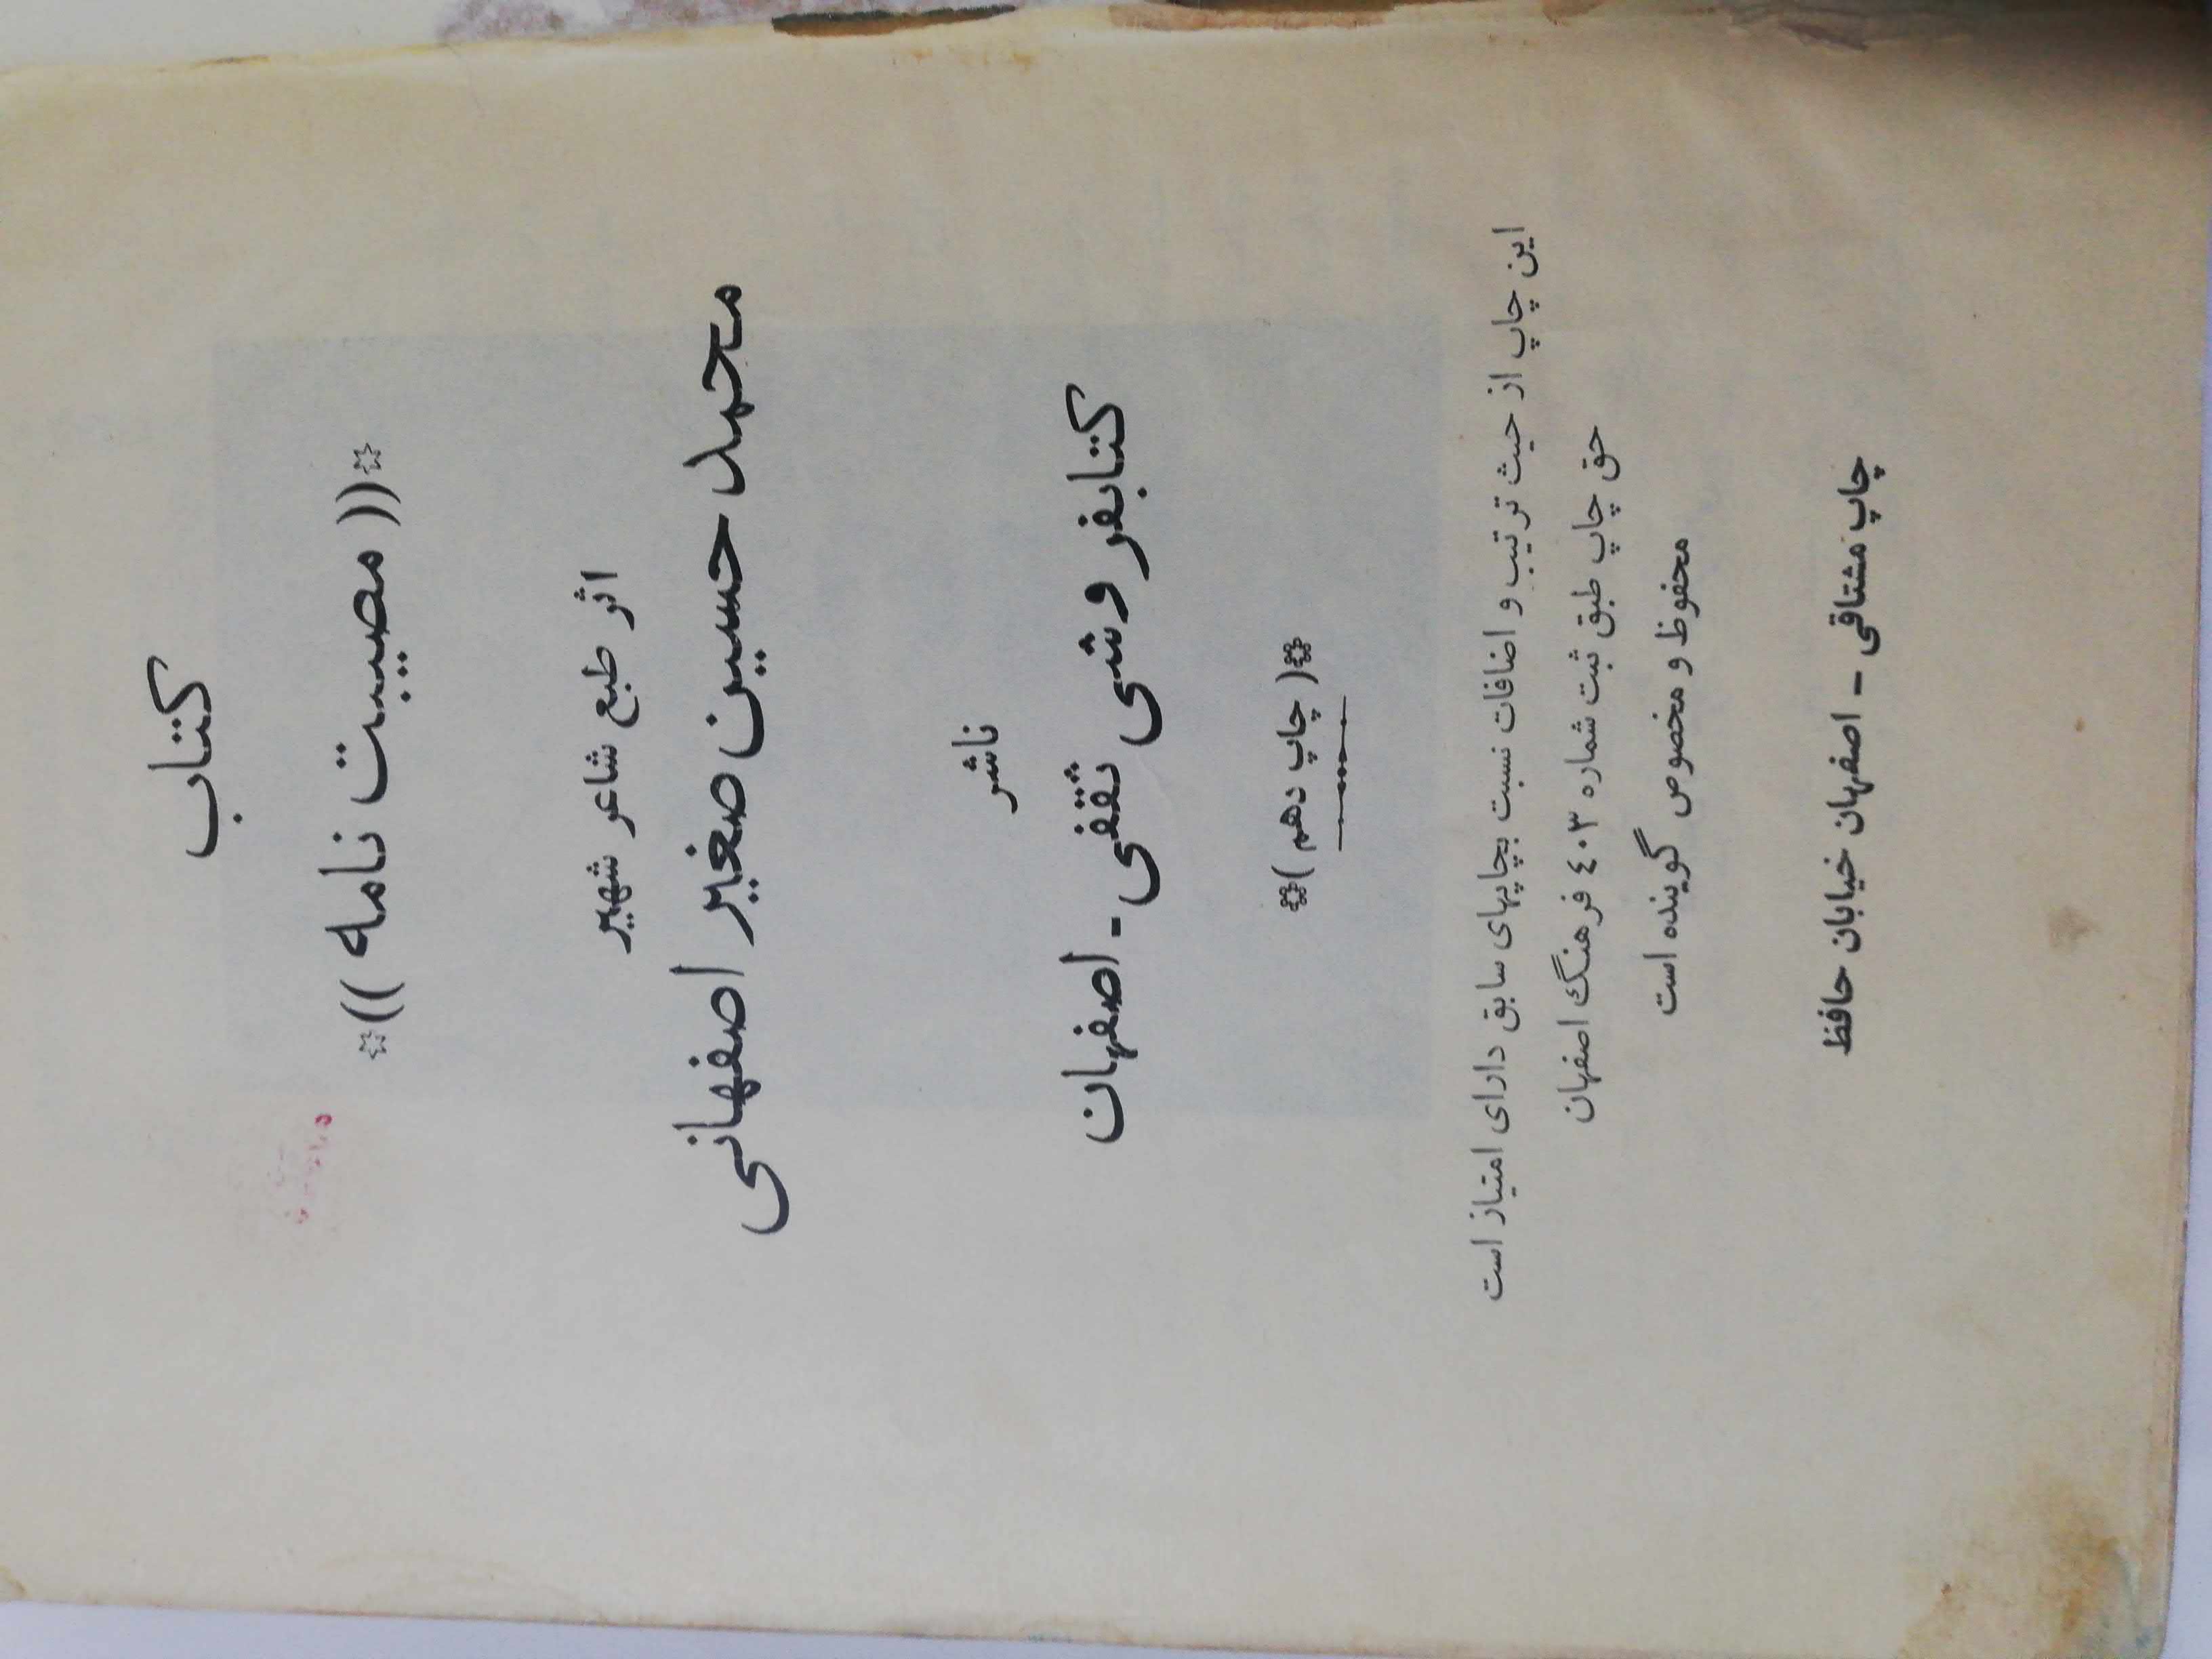 کتاب
*(( مصیبت نامه ))*
اثر طبع شاعر شهیر
محمد حسین صغیر اصفهانی
ناشر
کتابفروشی ثقفی - اصفهان
*( چاپ دهم )*
این چاپ از حیث ترتیب و اضافات نسبت بچاپهای سابق دارای امتیاز است
حق چاپ طبق ثبت شماره ٤٠٣ فرهنگ اصفهان
محفوظ و مخصوص گوینده است
چاپ مشتاقی - اصفهان خیابان حافظ